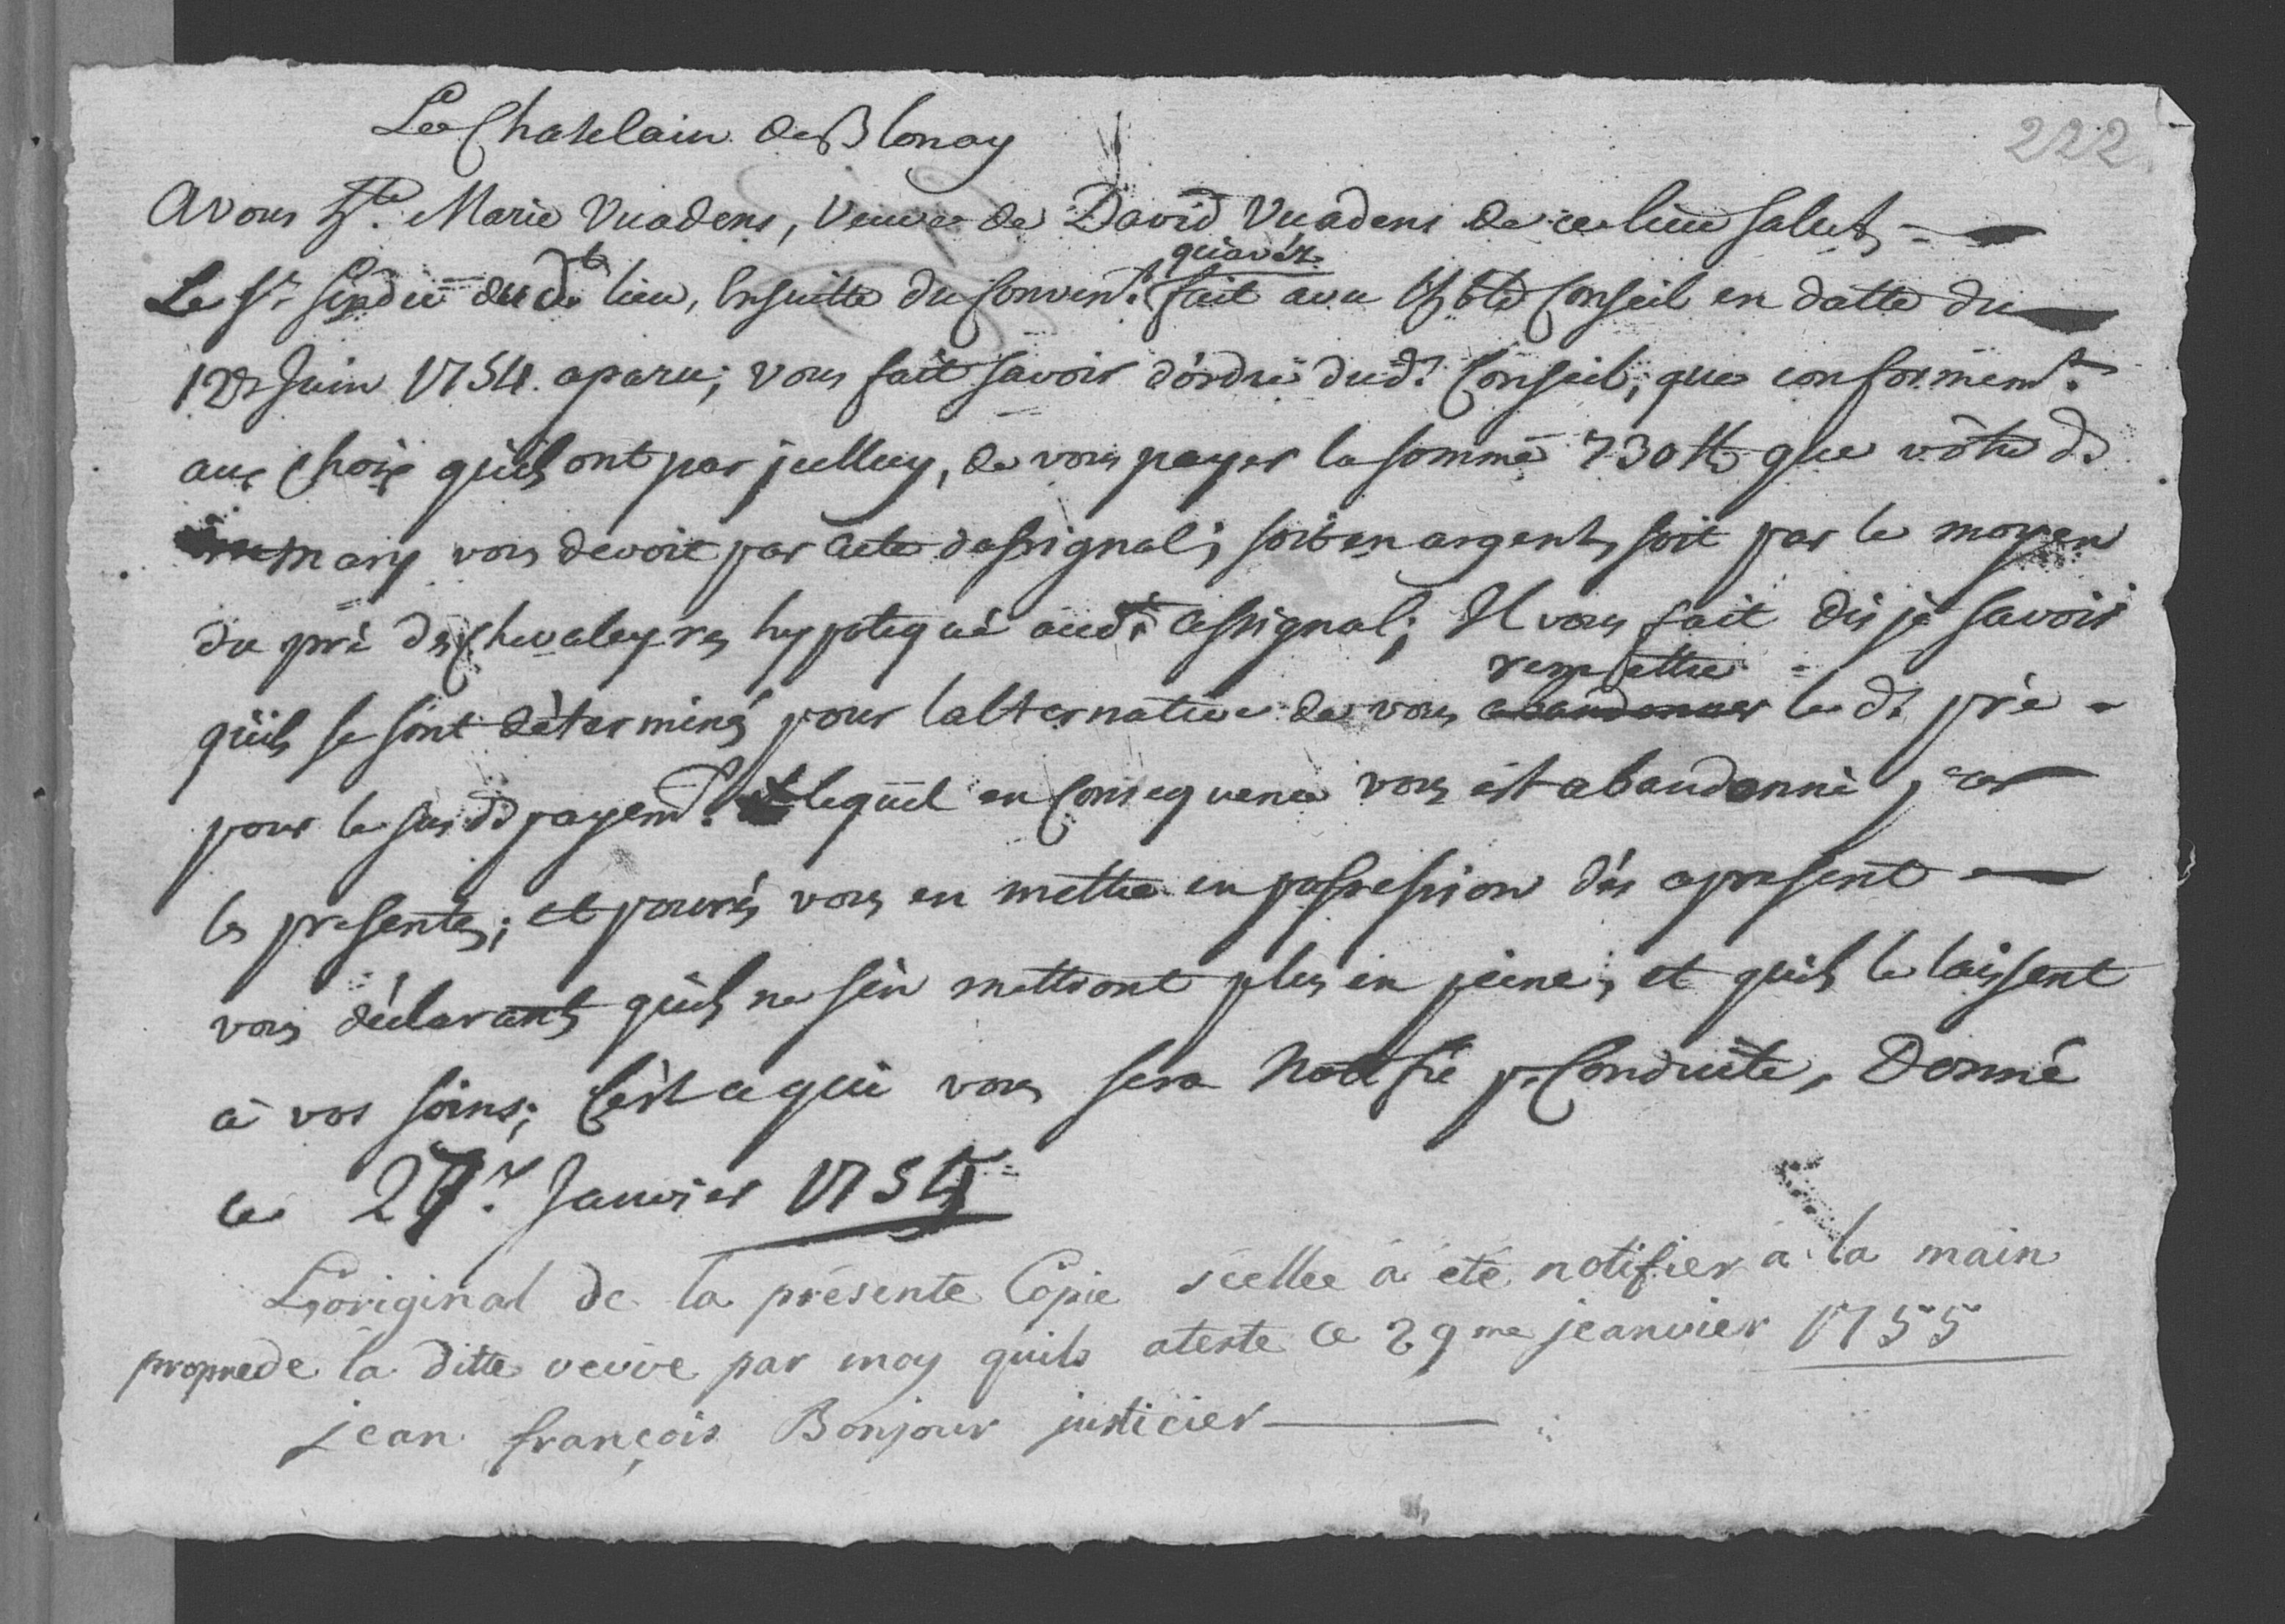 222
Le Chatelain de Blonay
A vous hte. Marie Vuadens, Veuve de David Vuadens de ce lieu salut
Le Sr. Sindic du dt. lieu, Ensuitte du Convent.
qu'avéz
fait avec l'hble Conseil en datte du
12e Juin 1754. aparu; vous fait savoir d'ordre dud. Conseil, que conformemt.
aux choix qu'ils ont par icelluy, de vous payer la somme 730 ff que vôtre d.
mary vous devoit par acte d'assignal, soit en argent, soit par le moyen
du prè des Chevaleyres hypotequé aud. assignal; Il vous fait dis je savoir
qu'ils se sont déterminés pour l'alternative de vous
remettre
abandonner le d. prè
pour le susd. payemt. lequel en Consequence vous est abandonnè par
les presentes; et pourés vous en mettre en possession dés apresent
vous déclarants qu'ils ne s'en mettront plus en peine, et qu'ils le laissent
à vos soins; C'est ce qui vous sera Notifié pr. Conduite, Donné
ce 27e. Janvier 1754
L'original de la présente Copie scellee a été notifier a la main
propre de la ditte veuve par moy qui l'ateste ce 29me jeanvier 1755
jean françois Bonjour justicier